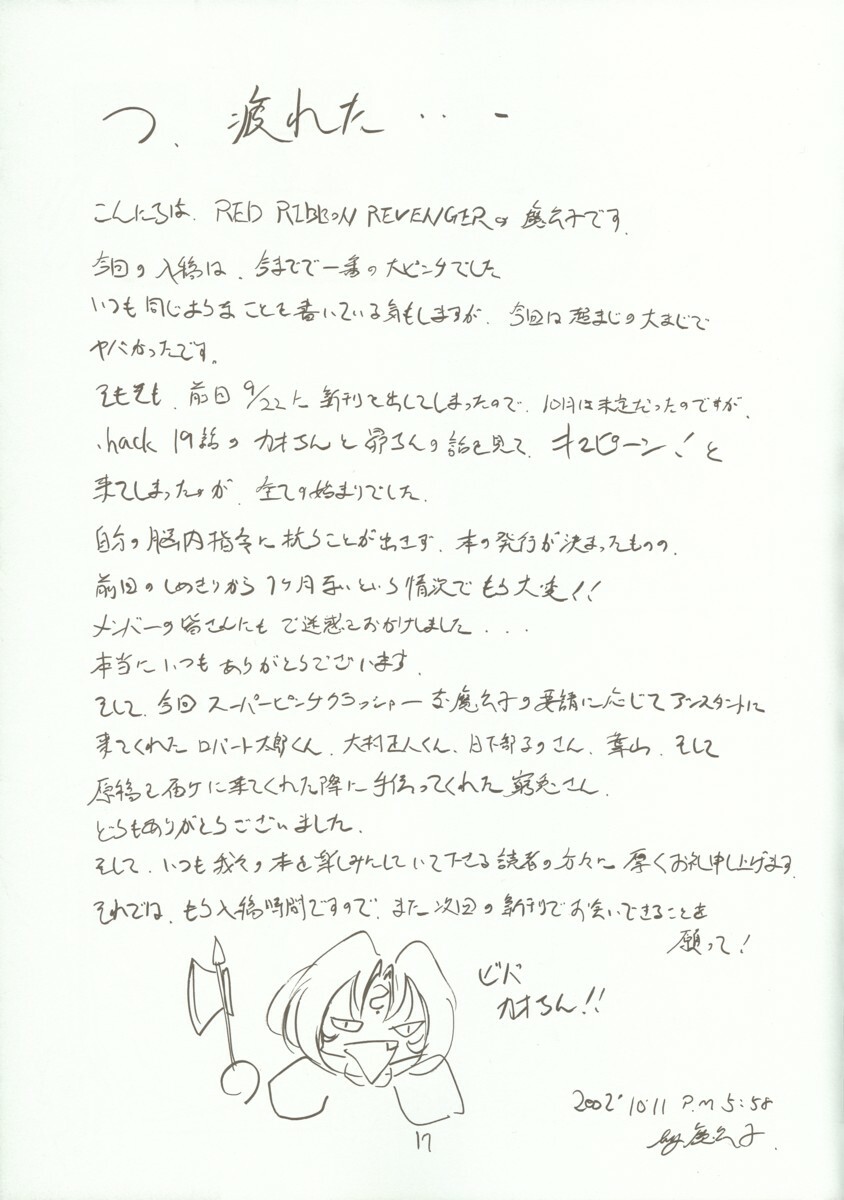 つ、疲れた・・ー
こんにちは、RED RIBBON REVENGERの魔公子です。
今回の入稿は、今までで一番の大ピンチでした
いつも同じようなことを書いている気もしますが、今回は超まじの大まじで
ヤバかったです。
そもそも、前回9/22に新刊を出してしまったので、10月は未定だったのですが、
.hack 19話のカオちんと昴ちんの話を見て、キュピーン!と
来てしまったのが、全ての始まりでした。
自分の脳内指令に抗うことが出来ず、本の発行が決まったものの、
前回のしめきりから1ヶ月ないという情況でもう大変!!
メンバーの皆さんにもご迷惑をおかけしました...
本当にいつもありがとうございます。
そして、今回スーパーピンチクラッシャーな魔公子の要請に応じてアシスタントに
来てくれたロバート太郎くん、大村正人くん、日下部さん、葉山、そして
原稿を届けに来てくれた際に手伝ってくれた窮兎さん、
どうもありがとうございました。
そして、いつも我々の本を楽しみにしていて下さる読者の方々に厚くお礼申し上げます。
それでは、もう入稿時間ですので、また次回の新刊でお会いできることを
願って!
ビバ
カオちん!!
2002' 10.11 P.M 5:58
by 魔公子.
17